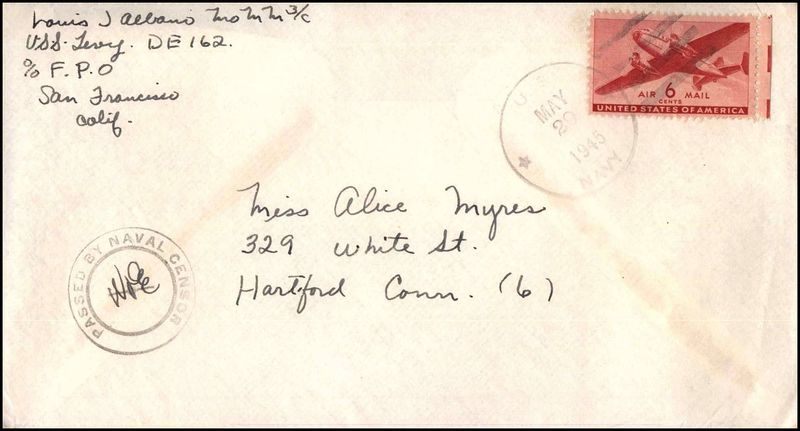 Louis J Albano MoMM 3/c
U.S.S. Levy. DE 162.
% F.P.O
San Francisco
Calif.
AIR 6 MAIL
CENTS
UNITED STATES OF AMERICA
U.S.
MAY
20
1945
NAVY
Miss Alice Myres
329 White St.
Hartford Conn. (6)
PASSED BY NAVAL CENSOR